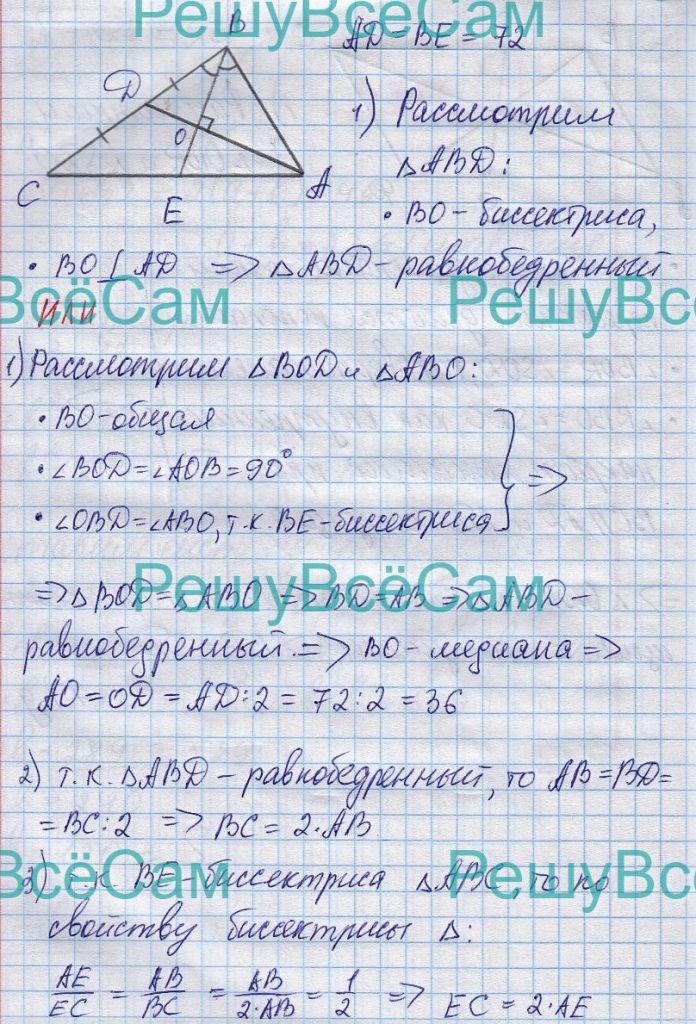 РешуВсёСам
B
AD = BE = 72
D
1) Рассмотрим
O
△ABD:
C
E
A
• BO – биссектриса,
• BO ⊥ AD => △ABD – равнобедренный
ВсёСам РешуВсё
или
1) Рассмотрим △BOD и △ABO:
• BO – общая
• ∠BOD = ∠AOB = 90°
=>
• ∠OBD = ∠ABO, т.к. BE – биссектриса
РешуВсёСам
=> △BOD = △ABO => BD = AB => △ABD –
равнобедренный => BO – медиана =>
AO = OD = AD:2 = 72:2 = 36
2) т.к. △ABD – равнобедренный, то AB = BD =
= BC:2 => BC = 2·AB
ВсёСам РешуВсё
3) т.к. BE – биссектриса △ABC, то по
свойству биссектрисы △:
AE/EC = AB/BC = AB/2·AB = 1/2 => EC = 2·AE